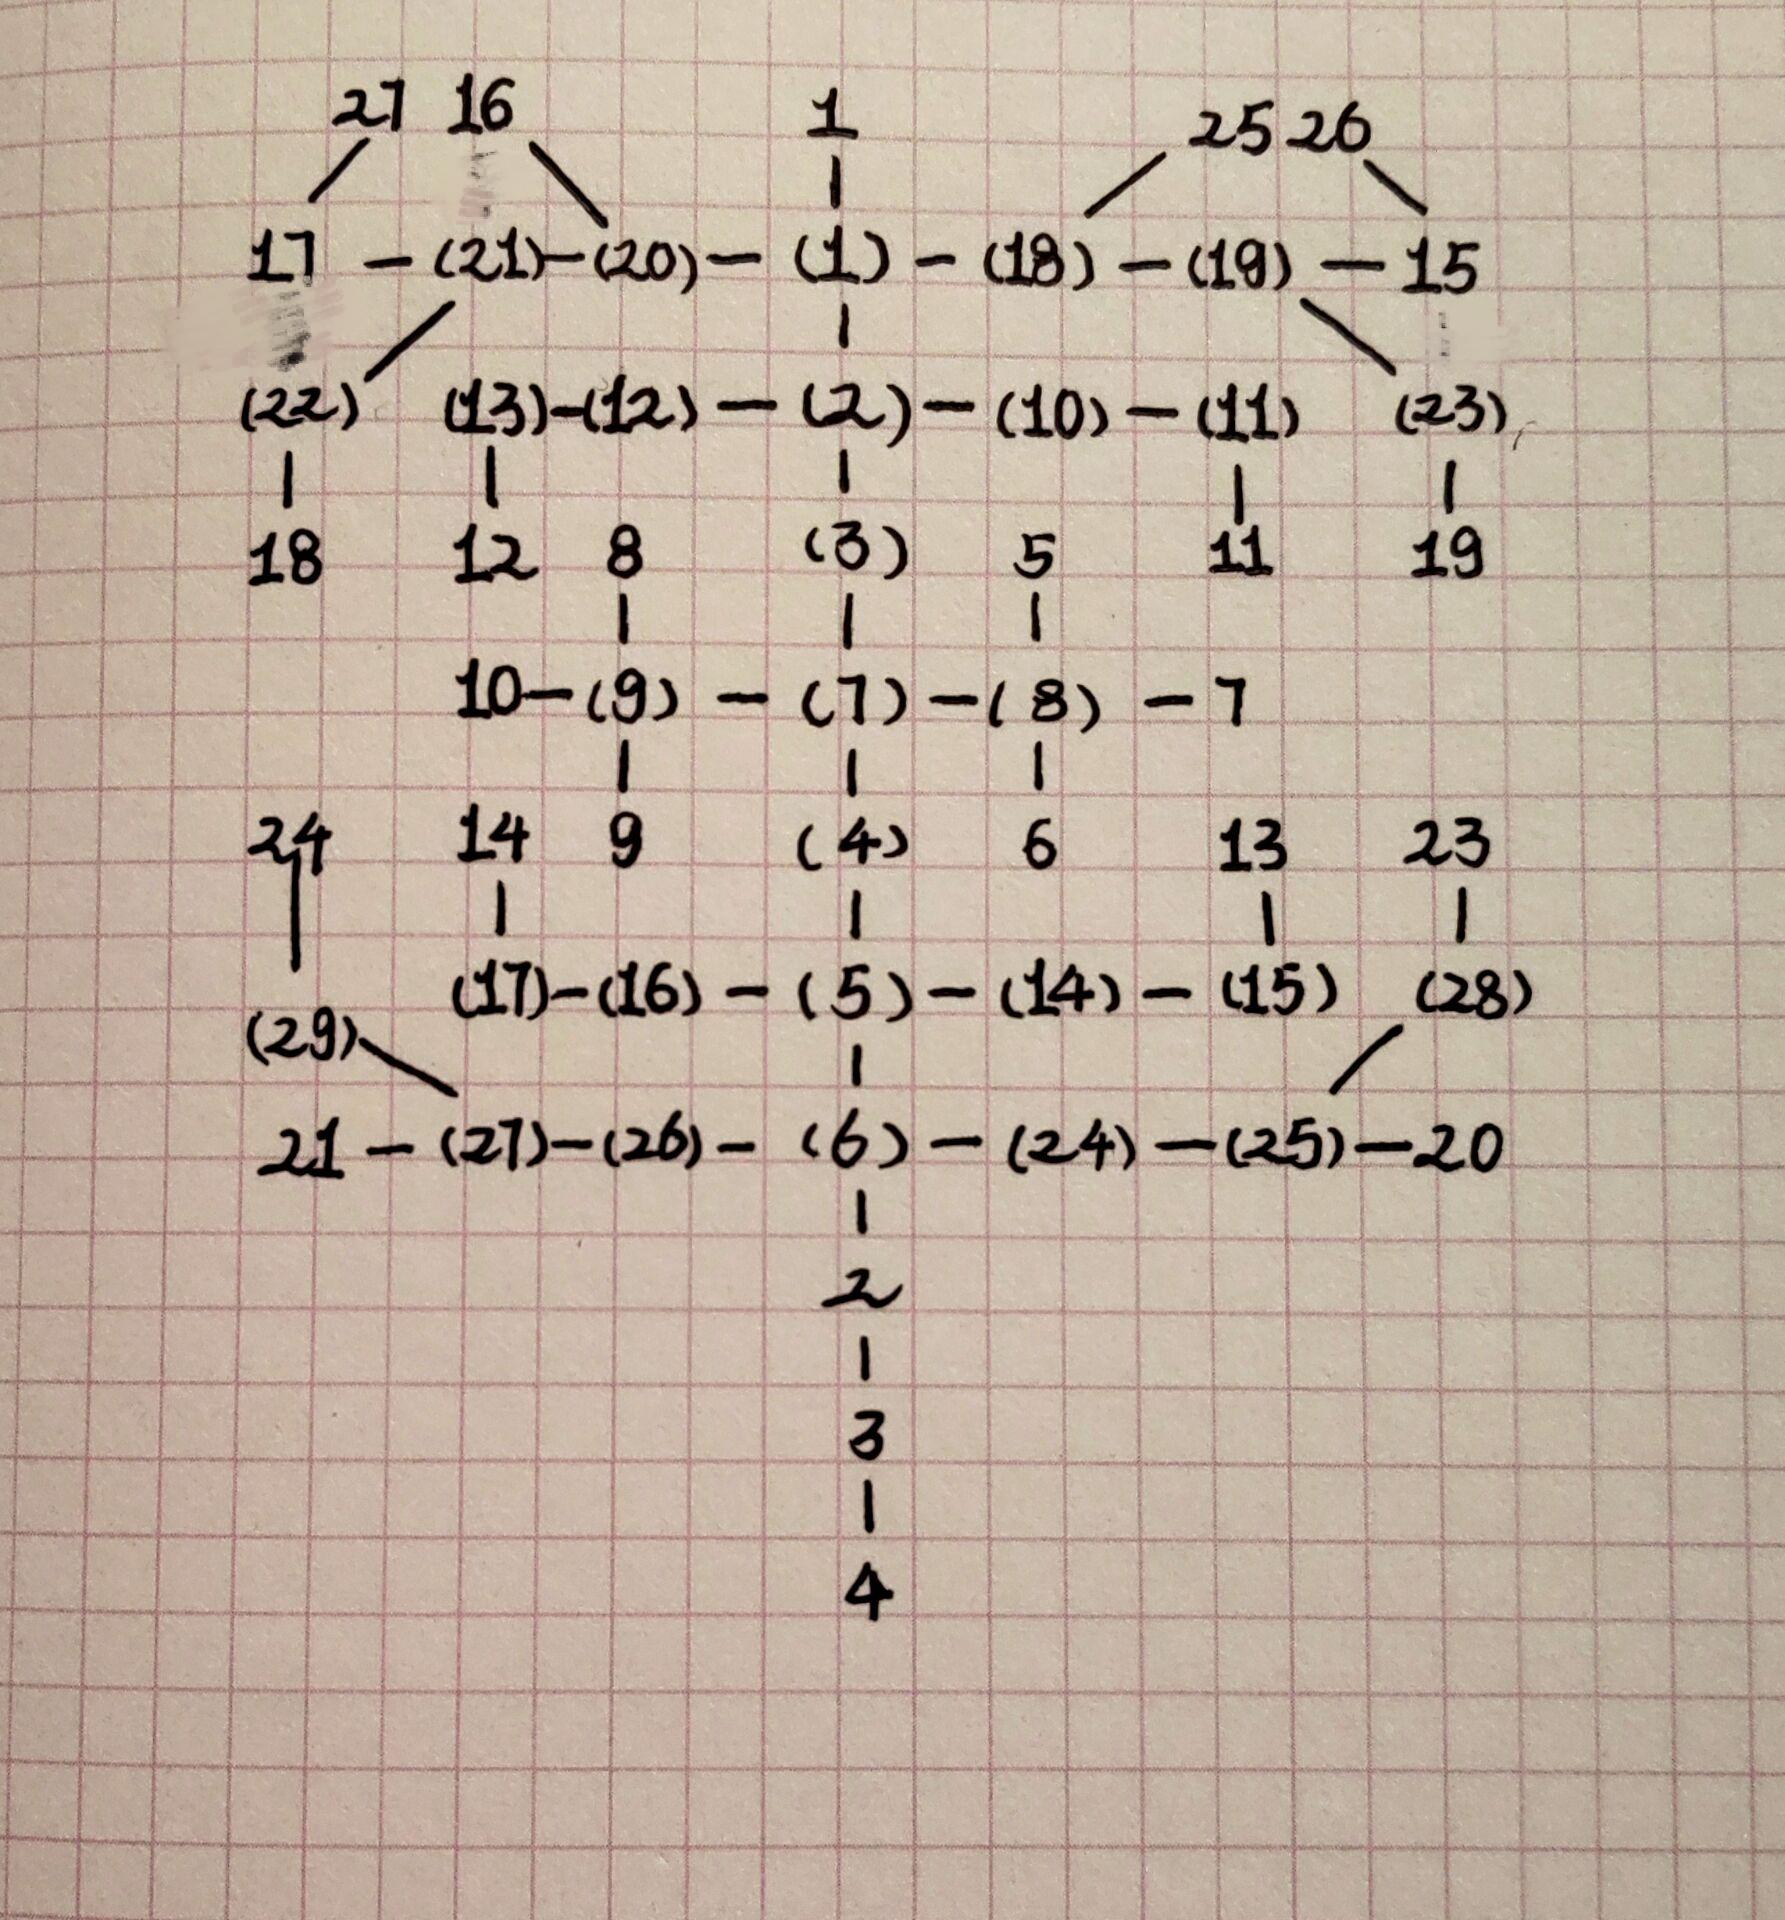 27 16 1 25 26
17 - (21) - (20) - (1) - (18) - (19) - 15
(22) (13) - (12) - (2) - (10) - (11) (23)
18 12 8 (3) 5 11 19
10 - (9) - (7) - (8) - 7
24 14 9 (4) 6 13 23
(17) - (16) - (5) - (14) - (15) (28)
(29)
21 - (27) - (26) - (6) - (24) - (25) - 20
2
3
4